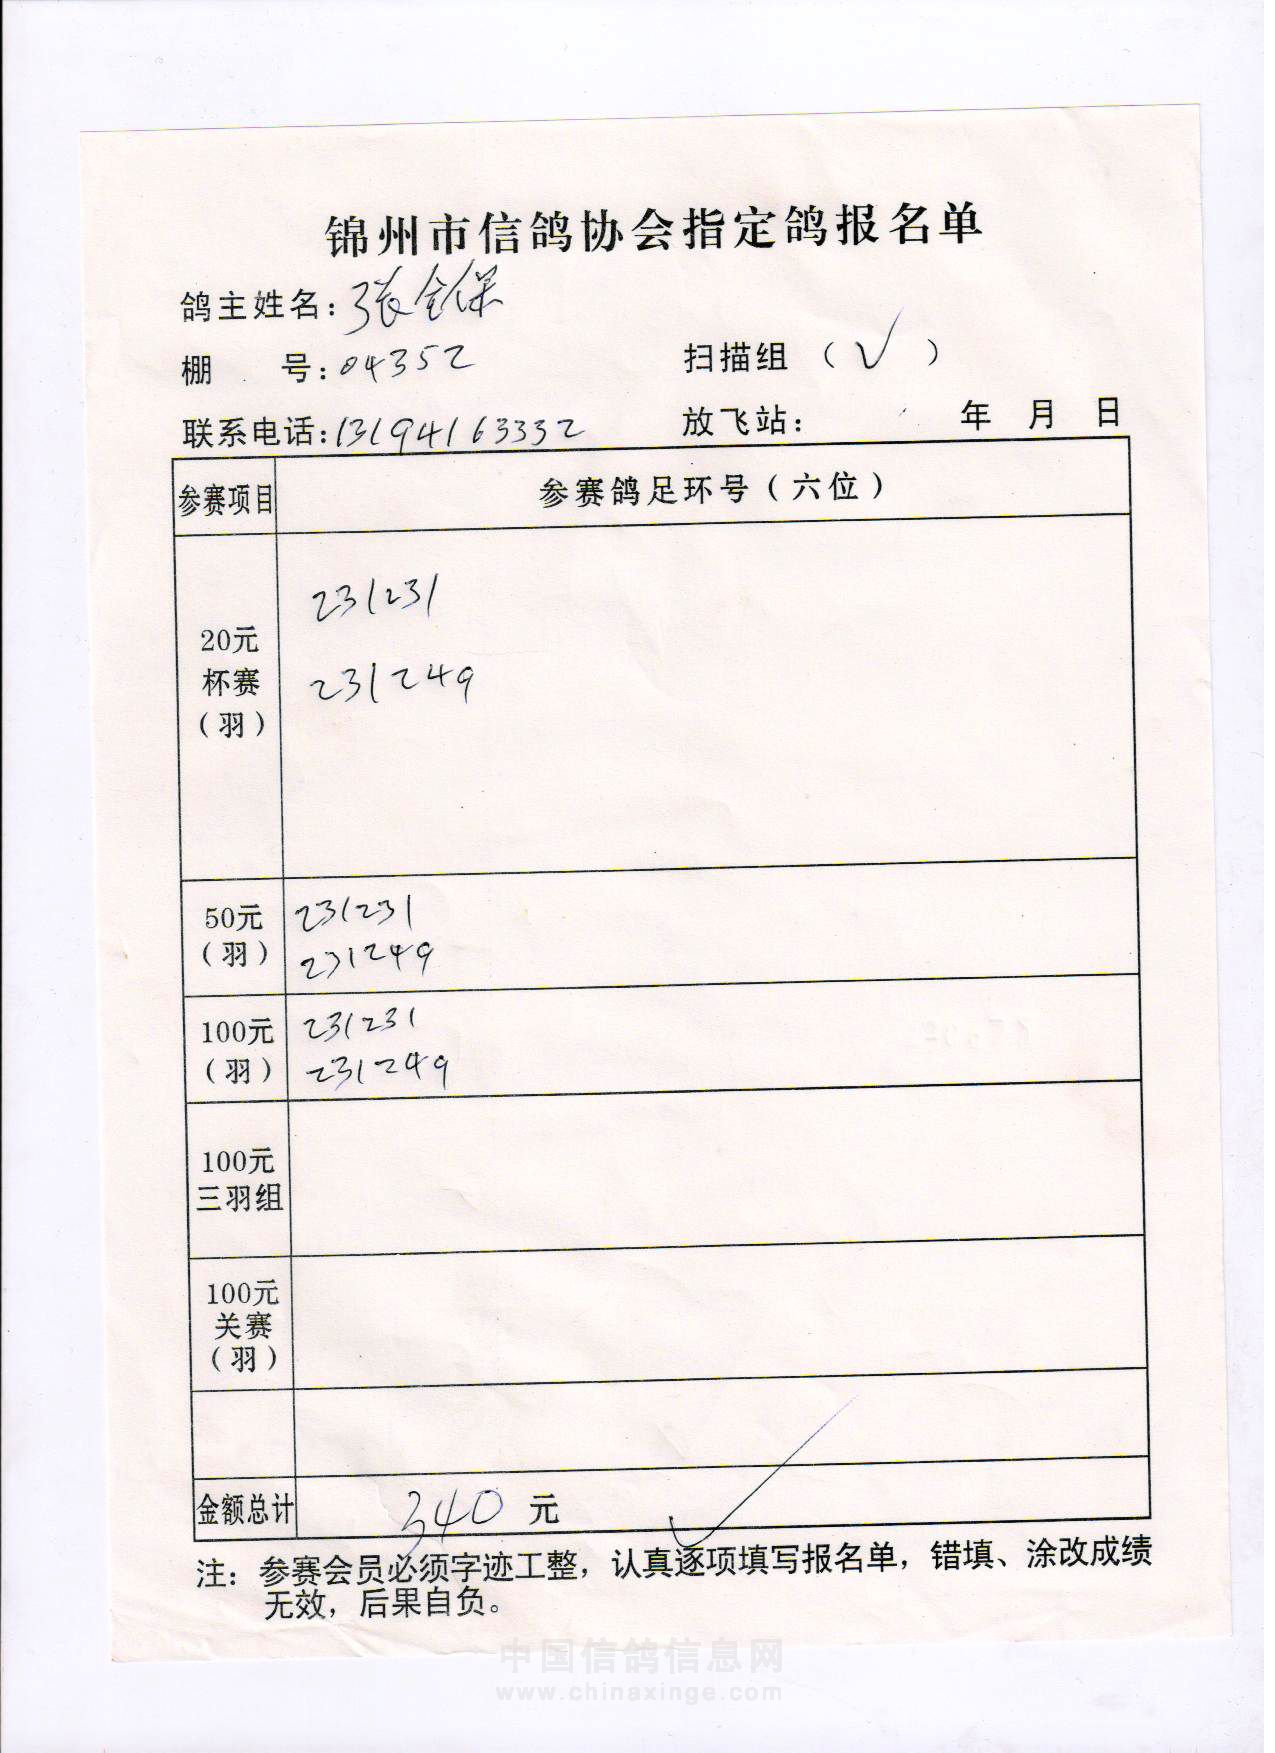 锦州市信鸽协会指定鸽报名单
鸽主姓名：张金保
棚 号：04352 扫描组（√）
联系电话：13194163332 放飞站： 年 月 日
参赛项目 参赛鸽足环号（六位）
20元
杯赛
（羽）
231231
231249
50元
（羽）
231231
231249
100元
（羽）
231231
231249
100元
三羽组
100元
关赛
（羽）
金额总计 340 元
注：参赛会员必须字迹工整，认真逐项填写报名单，错填、涂改成绩
无效，后果自负。
中国信鸽信息网
www.chinaxinge.com